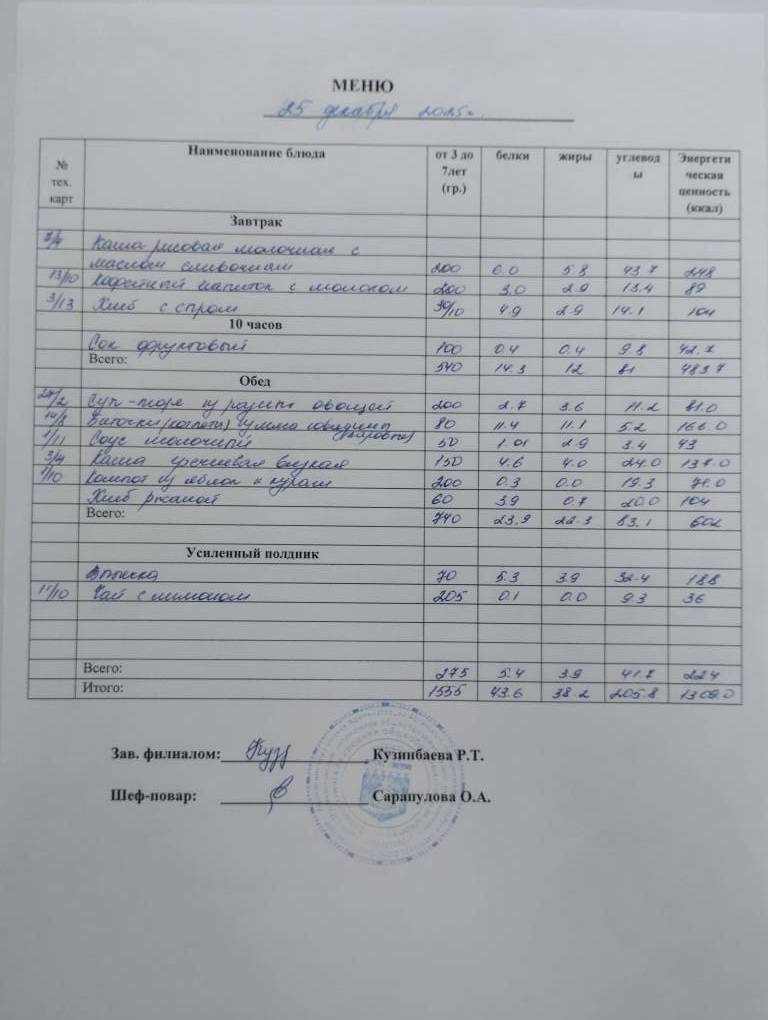 МЕНЮ
25 декабря 2025г.
№ тех. карт Наименование блюда от 3 до 7лет (гр.) белки жиры углеводы Энергетическая ценность (ккал)
Завтрак
Каша рисовая молочная с
маслом сливочным 200 6.0 5.8 43.7 248
13/10 Кофейный напиток с молоком 200 3.0 2.9 13.4 89
3/13 Хлеб с сыром 30/10 4.9 2.9 14.1 104
10 часов
Сок фруктовый 100 0.4 0.4 9.8 42.7
Всего: 540 14.3 12 81 483.7
Обед
Суп-пюре из разных овощей 200 2.7 3.6 11.2 81.0
14/8 Биточки (котлеты) из мяса говядины (паровые) 80 11.4 11.1 5.2 166.0
1/11 Соус молочный 50 1.01 2.9 3.4 43
3/4 Каша гречневая вязкая 150 4.6 4.0 24.0 137.0
1/10 Компот из яблок и кураги 200 0.3 0.0 19.3 71.0
Хлеб ржаной 60 3.9 0.7 20.0 104
Всего: 740 23.9 22.3 83.1 602
Усиленный полдник
Выпечка 70 5.3 3.9 32.4 188
11/10 Чай с лимоном 205 0.1 0.0 9.3 36
Всего: 275 5.4 3.9 41.7 224
Итого: 1555 43.6 38.2 205.8 1309.0
Зав. филиалом: Кузинбаева Р.Т.
Шеф-повар: Сарапулова О.А.